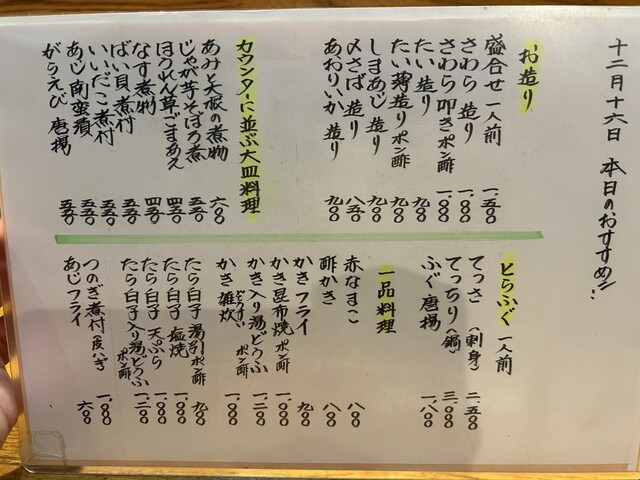 十二月十六日 本日のおすすめ!!
お造り
盛合せ 一人前 一、五〇〇
さわら 造り 一、〇〇〇
さわら 叩きポン酢 一、〇〇〇
たい 造り 九〇〇
たい 薄造りポン酢 九〇〇
しまあじ 造り 九〇〇
〆さば 造り 八五〇
あおりいか 造り 九〇〇
カウンターに並ぶ大皿料理
あみと大根の煮物 六〇〇
じゃが芋そぼろ煮 五五〇
ほうれん草ごまあえ 四五〇
なす煮物 四五〇
ばい貝煮付 五五〇
いいだこ煮付 五五〇
あじ南蛮漬 五五〇
がらえび 唐揚 五五〇
とらふぐ 一人前
てっさ(刺身) 二、五〇〇
てっちり(鍋) 三、〇〇〇
ふぐ 唐揚 一、八〇〇
一品料理
赤なまこ 八〇〇
酢かき 八〇〇
かきフライ 九〇〇
かき昆布焼ポン酢 一、〇〇〇
かき入り湯どうふポン酢 一、二〇〇
かき 雑炊 一、〇〇〇
たら白子 湯引ポン酢 九〇〇
たら白子 塩焼 一、〇〇〇
たら白子 天ぷら 一、〇〇〇
たら白子入り湯どうふポン酢 一、二〇〇
つのぎ煮付(皮はぎ 一、〇〇〇
あじフライ 六〇〇